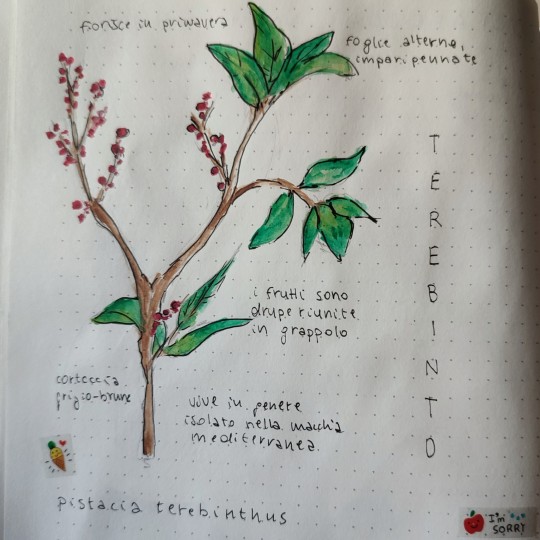 fiorisce in primavera
foglie alterne,
imparipennate
TEREBINTO
i frutti sono
drupe riunite
in grappolo
corteccia
grigio-bruna
vive in genere
isolato nella macchia
mediterranea.
pistacia terebinthus
I'm
SORRY